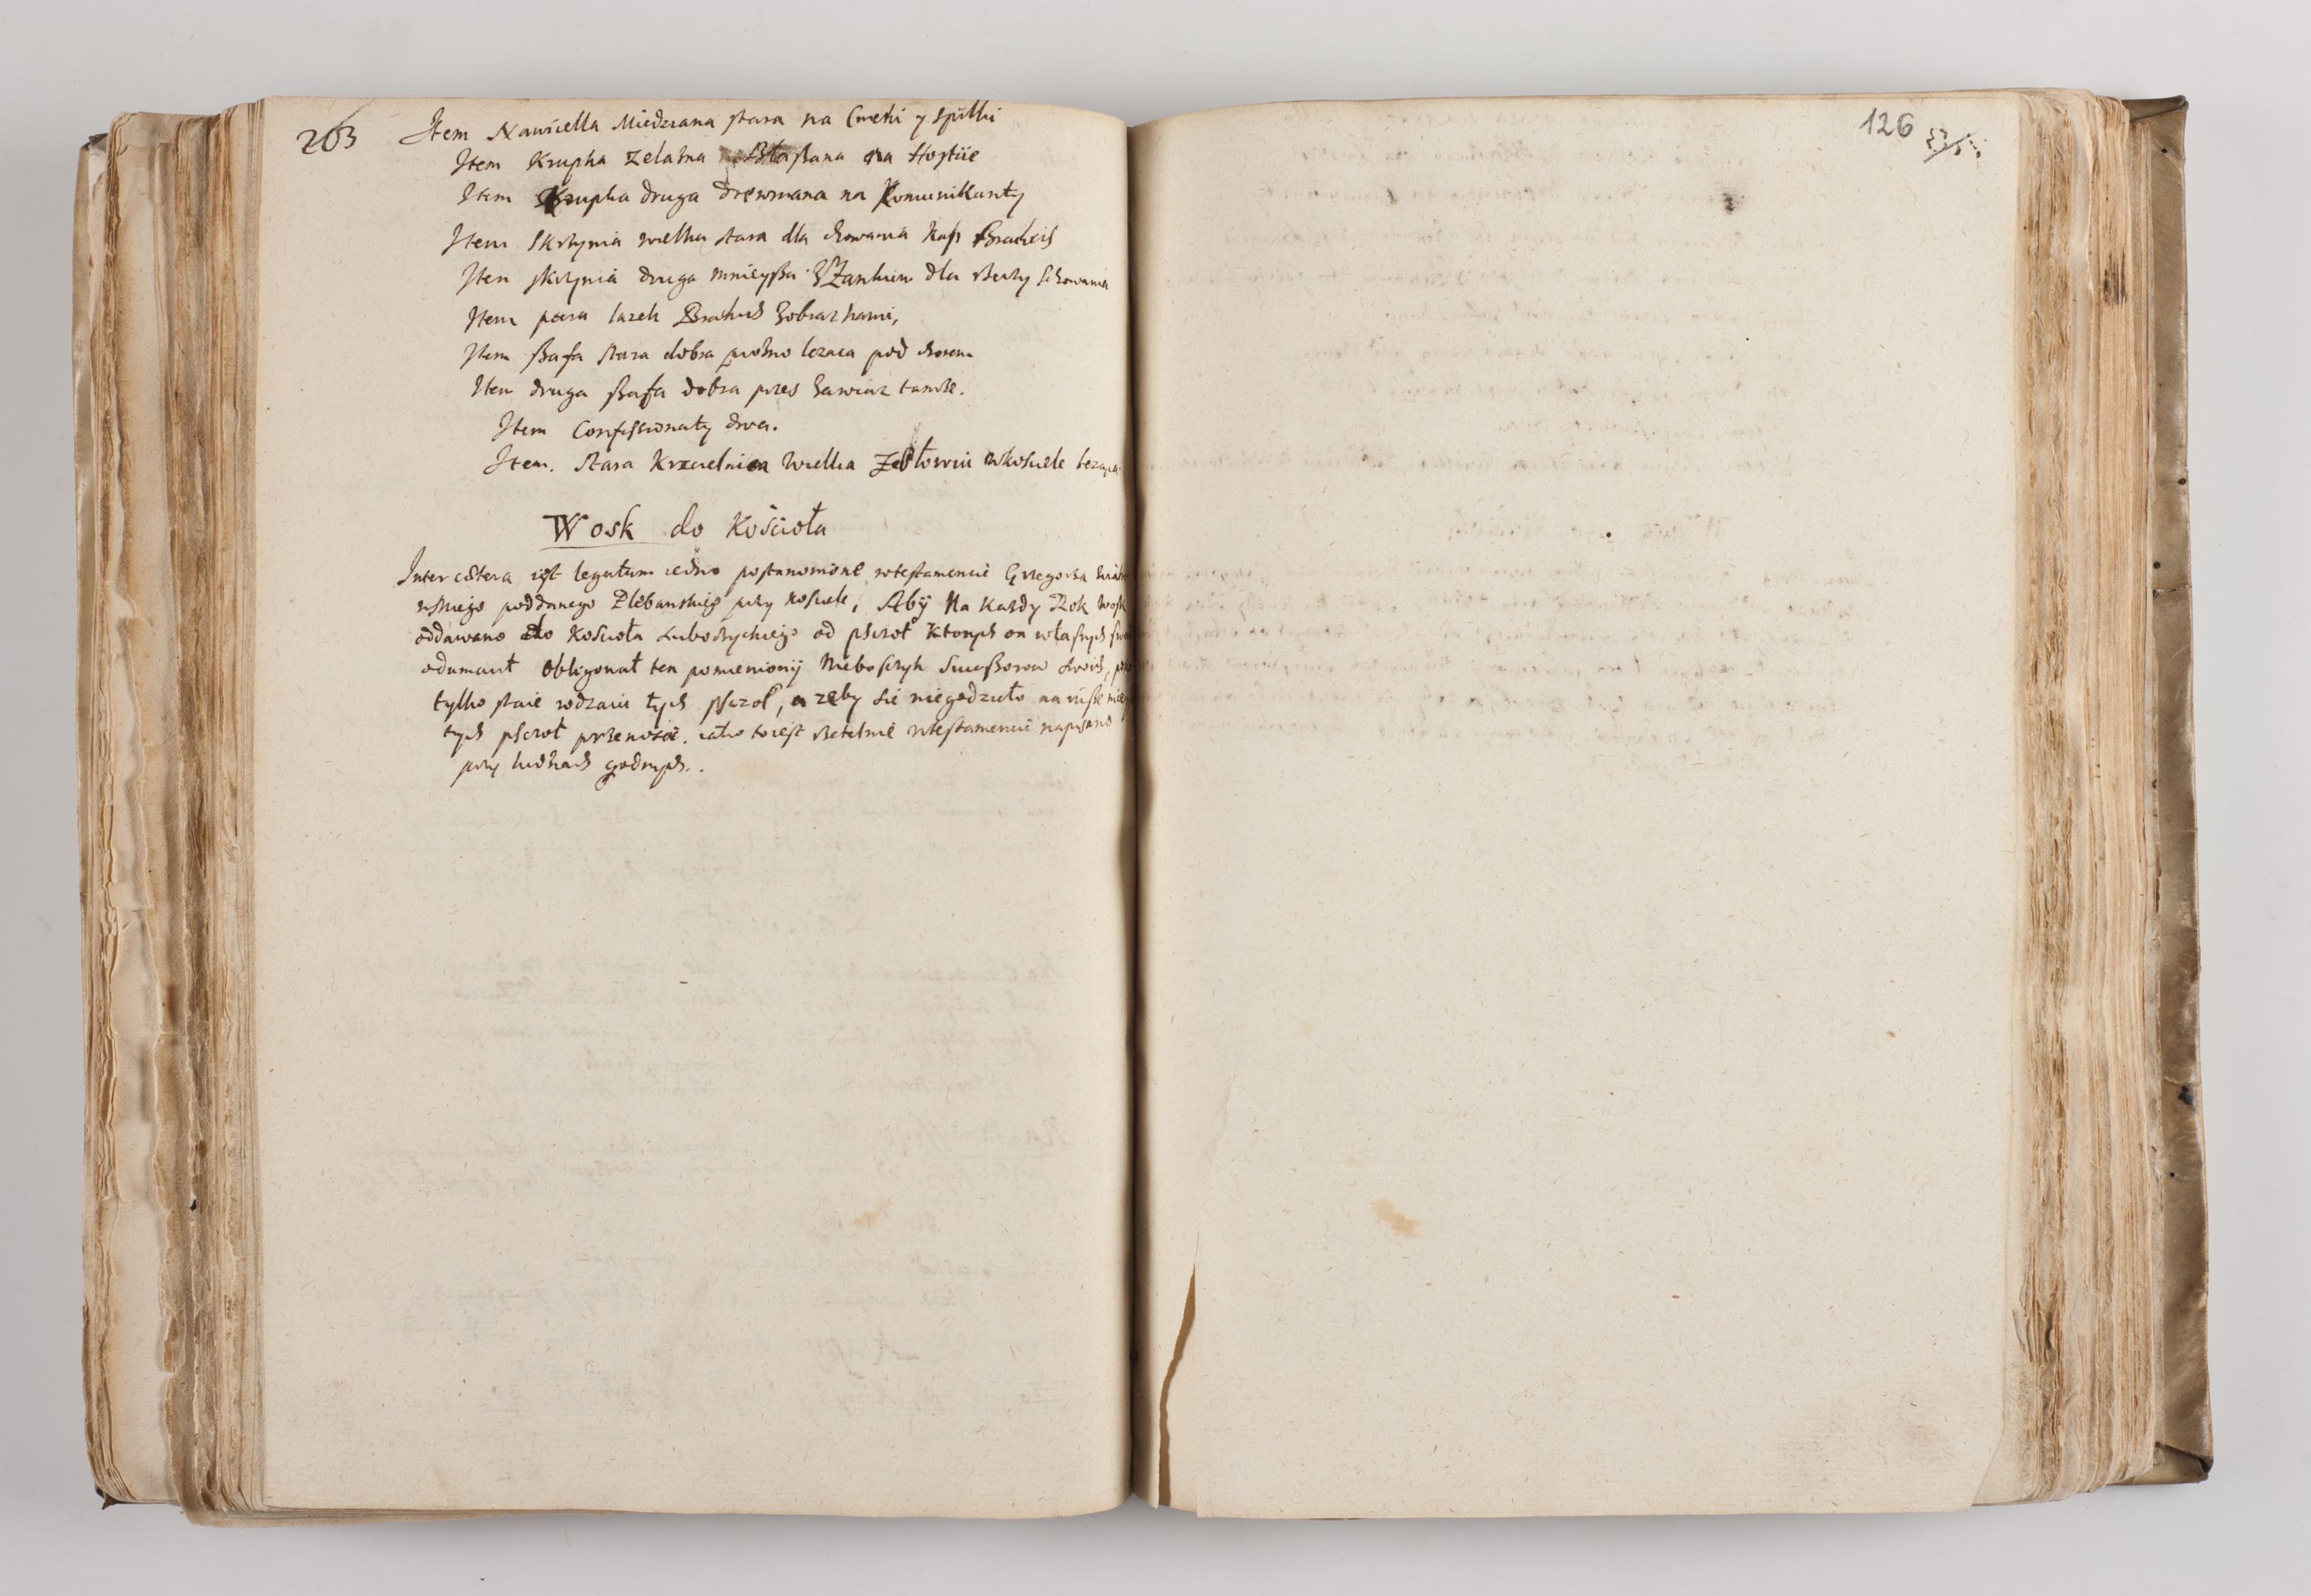 203
Item Nawicella Miedziana stara na Cweki y szpilki
Item Krupka zelazna Blaszana na Hostiie
Item Krupka druga drewniana na Komunikanty
Item Skrzynia wielka stara dla chowania Kap Brackich
Item skrzynia druga mnieyßa z Zamkiem dla rzeczy schowania
Item para lazek Brackich z obrazkami,
Item ßafa stara dobra prozno lezaca pod chorem
Item druga ßafa dobra przes zawiaz tamze.
Item Confessionały dwa.
Item. Stara Krzcielnica Wielka wkosciele
Wosk do Kościoła
Inter cætera iest legatum iedno postanowione wtestamencie Grzegorza
poddanego Plebanskiego przy kosciele, Aby Na Kazdy Rok Wosk
oddawano do Kosciola od pszczoł Ktorych on własnych
odumarł Obligował ten pomieniony Nieboszczyk Sucessorow swoich,
tylko staie rodzaiu tych pszczoł, a zeby sie niegodziło na insze
tych pszczoł przenosić. iako to iest rzetelnie wtestamencie napisano
przy ludziach godnych.
126